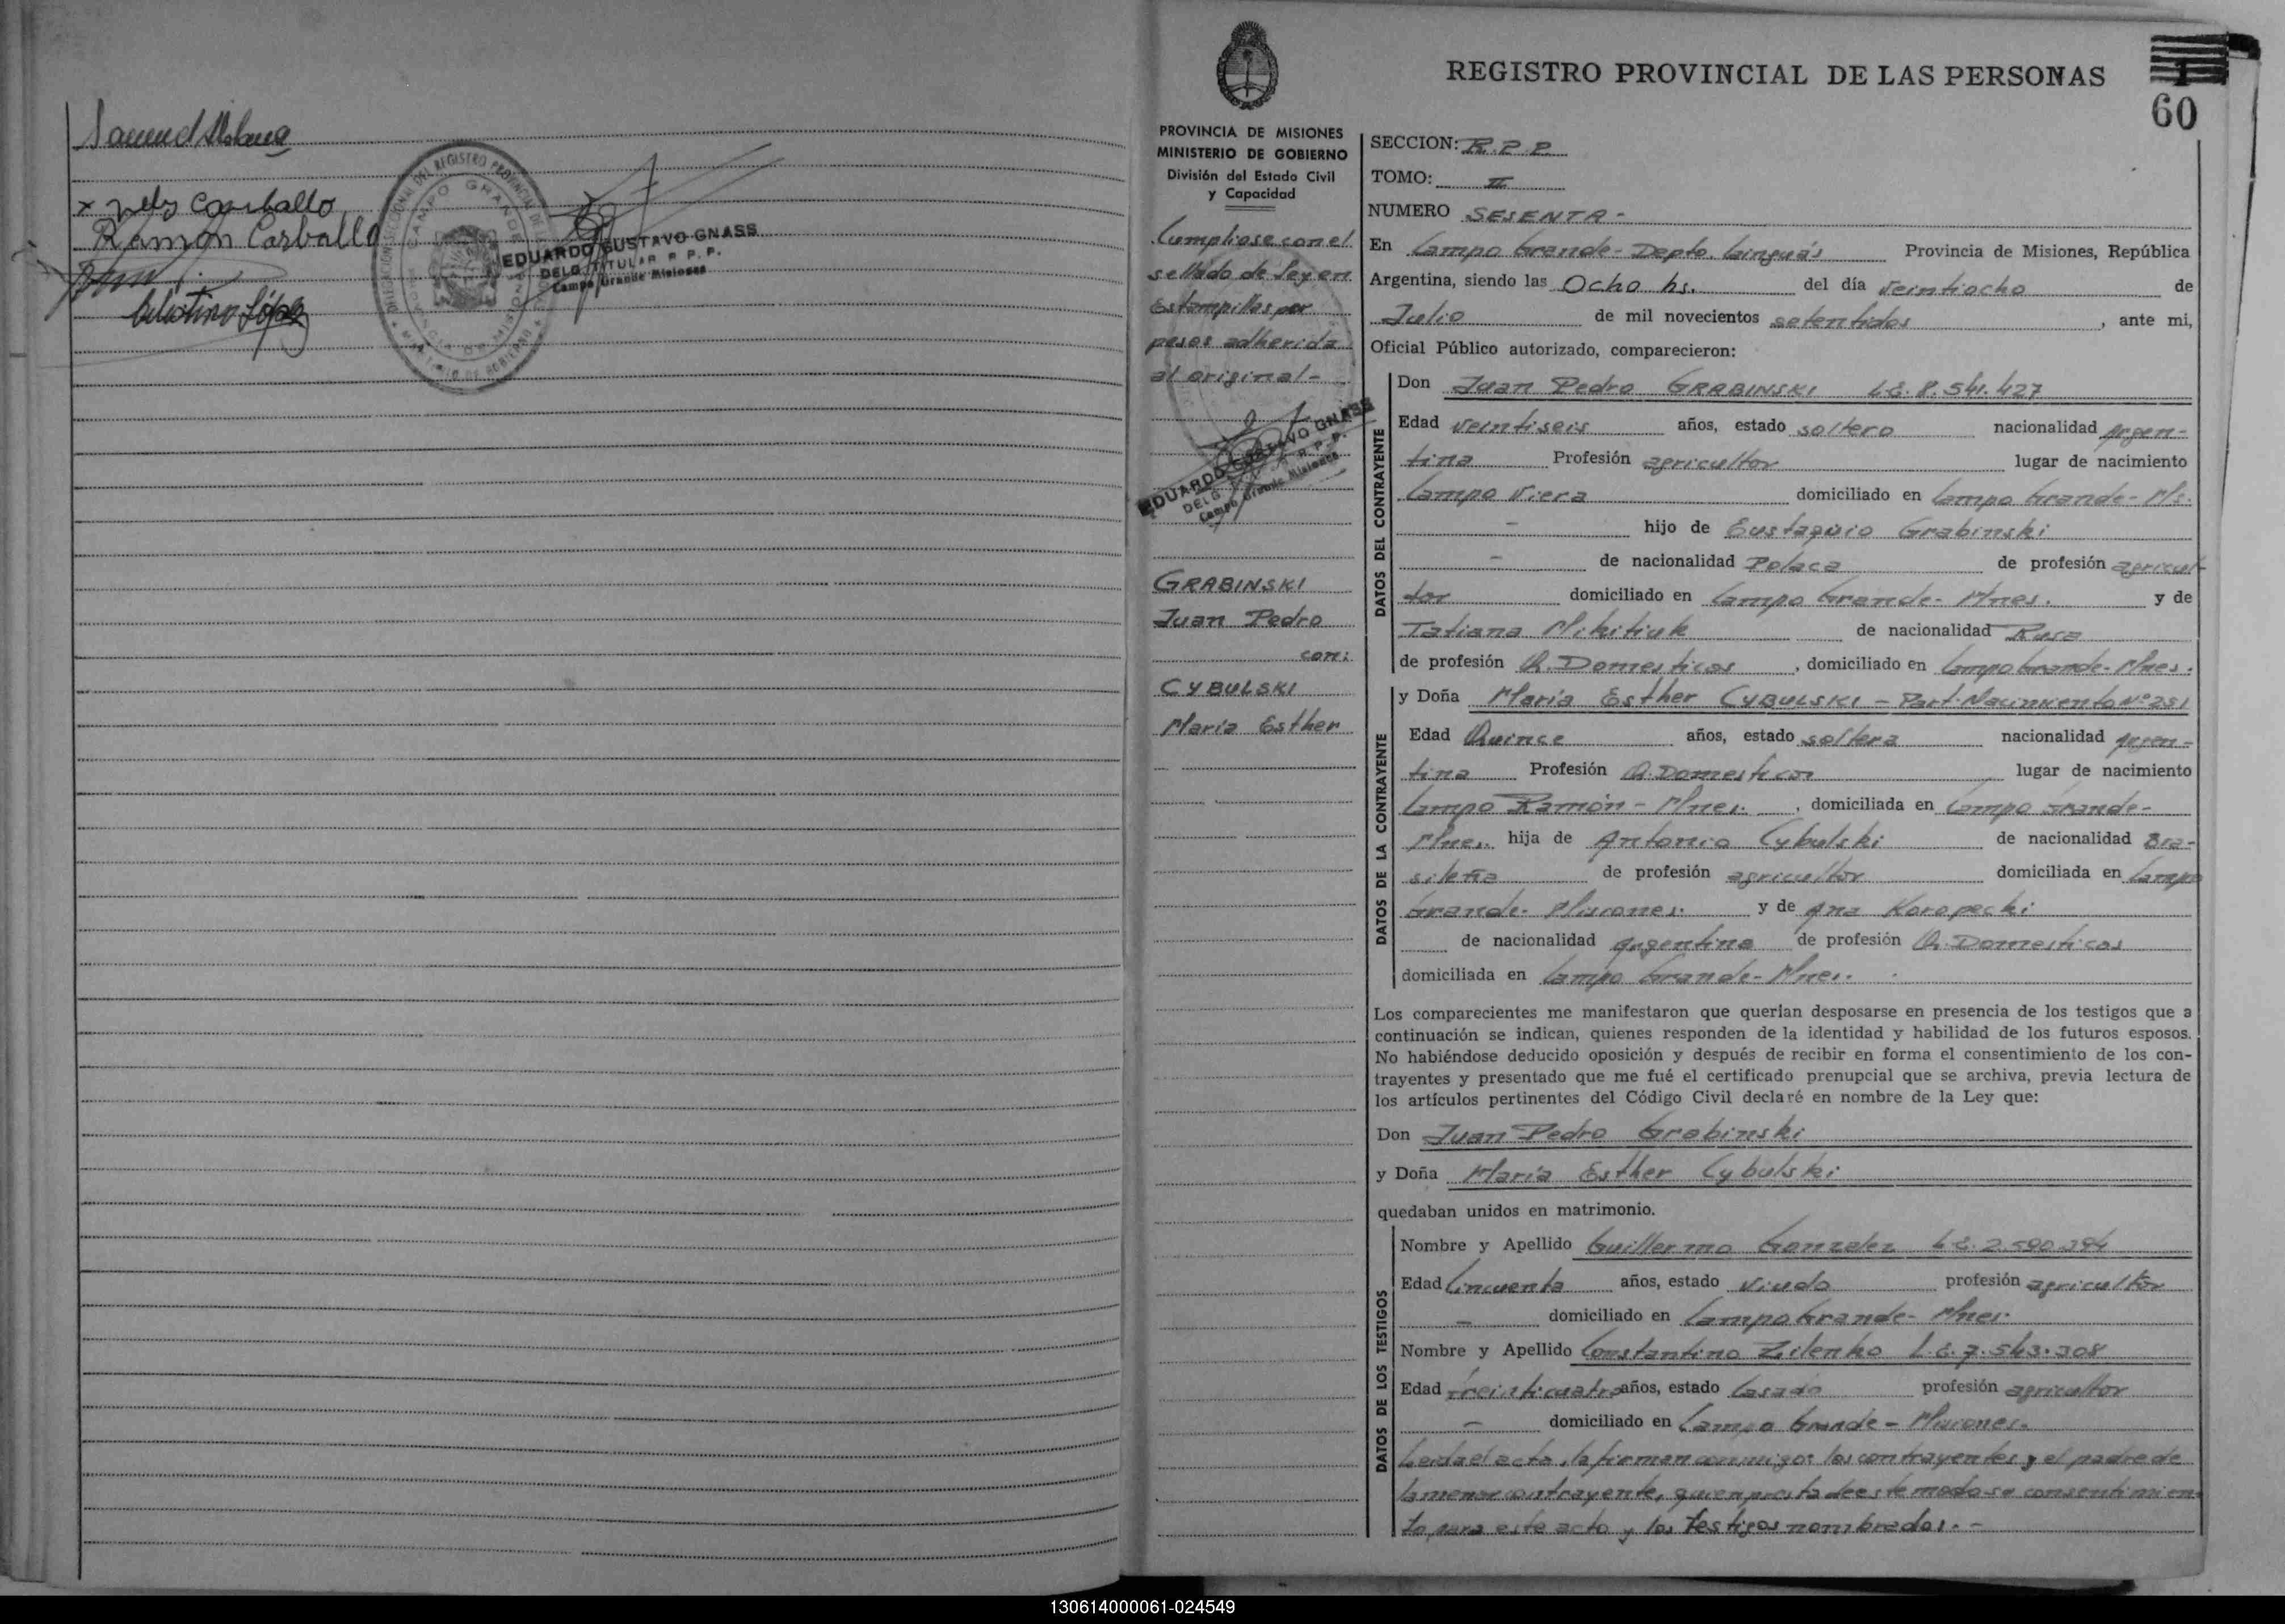 Samuel
x Nelly Carballo
Ramón Carballo
Celestino López
DELEGACION SECCIONAL DEL REGISTRO PROVINCIAL DE
CAMPO GRANDE
MINISTERIO DE GOBIERNO
EDUARDO GUSTAVO GNASS
DELG. TITULAR R. P. P.
Campo Grande Misiones
REGISTRO PROVINCIAL DE LAS PERSONAS
1
60
PROVINCIA DE MISIONES
MINISTERIO DE GOBIERNO
División del Estado Civil
y Capacidad
Cumpliose con el
sellado de ley en
Estampillas por
pesos adherida
al original-
EDUARDO GUSTAVO GNASS
DELG. TITULAR R. P. P.
Campo Grande Misiones
GRABINSKI
Juan Pedro
con:
CYBULSKI
María Esther
SECCION: R.P.P.
TOMO: II
NUMERO SESENTA-
En Campo Grande- Depto. Cainguás Provincia de Misiones, República
Argentina, siendo las Ocho hs. del día veintiocho de
Julio de mil novecientos setentidos, ante mi,
Oficial Público autorizado, comparecieron:
DATOS DEL CONTRAYENTE
Don Juan Pedro GRABINSKI L.E. 8.541.427
Edad veintiseis años, estado soltero nacionalidad Argen-
tina Profesión agricultor lugar de nacimiento
Campo Viera domiciliado en Campo Grande- Ms.
- hijo de Eustaquio Grabinski
- de nacionalidad Polaca de profesión agricul-
tor domiciliado en Campo Grande- Mnes. y de
Tatiana Mikitiuk de nacionalidad Rusa
de profesión Q. Domesticos, domiciliado en Campo Grande- Mnes.
DATOS DE LA CONTRAYENTE
y Doña María Esther CYBULSKI - Part. Nacimiento Nº 251
Edad Quince años, estado soltera nacionalidad Argen-
tina Profesión Q. Domesticos lugar de nacimiento
Campo Ramón - Mnes. , domiciliada en Campo Grande-
Mnes. hija de Antonio Cybulski de nacionalidad Bra-
sileña de profesión agricultor domiciliada en Campo
Grande- Misiones. y de Ana Koropecki
de nacionalidad Argentina de profesión Q. Domesticos
domiciliada en Campo Grande- Mnes.
Los comparecientes me manifestaron que querían desposarse en presencia de los testigos que a
continuación se indican, quienes responden de la identidad y habilidad de los futuros esposos.
No habiéndose deducido oposición y después de recibir en forma el consentimiento de los con-
trayentes y presentado que me fué el certificado prenupcial que se archiva, previa lectura de
los artículos pertinentes del Código Civil declaré en nombre de la Ley que:
Don Juan Pedro Grabinski
y Doña María Esther Cybulski
quedaban unidos en matrimonio.
DATOS DE LOS TESTIGOS
Nombre y Apellido Guillermo Gonzalez L.E. 
Edad Cincuenta años, estado viudo profesión agricultor
- domiciliado en Campo Grande- Mnes.
Nombre y Apellido Constantino Zilenko L.E. 7.543.308
Edad treinticuatro años, estado Casado profesión agricultor
- domiciliado en Campo Grande - Misiones.
Leida el acta, la firman conmigo: los contrayentes y el padre de
la menor contrayente, quien presta de este modo su consentimien-
to para este acto y los testigos nombrados.-
130614000061-024549